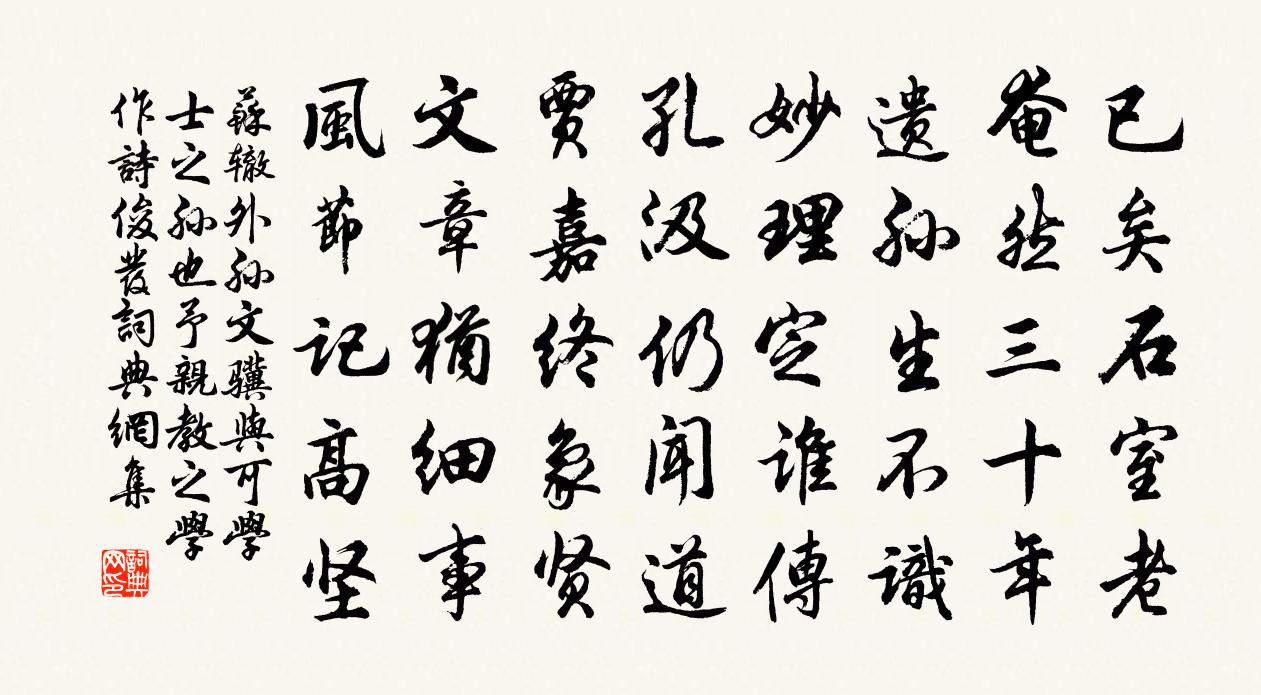 已矣石室老
奄然三十年
遗孙生不識
妙理定誰傳
孔汲仍闻道
賈嘉终象贤
文章猶细事
風節记高坚
蘇辙外孙文驥與可學
士之孙也予親教之學
作詩俊發詞典網集
詞典
网印